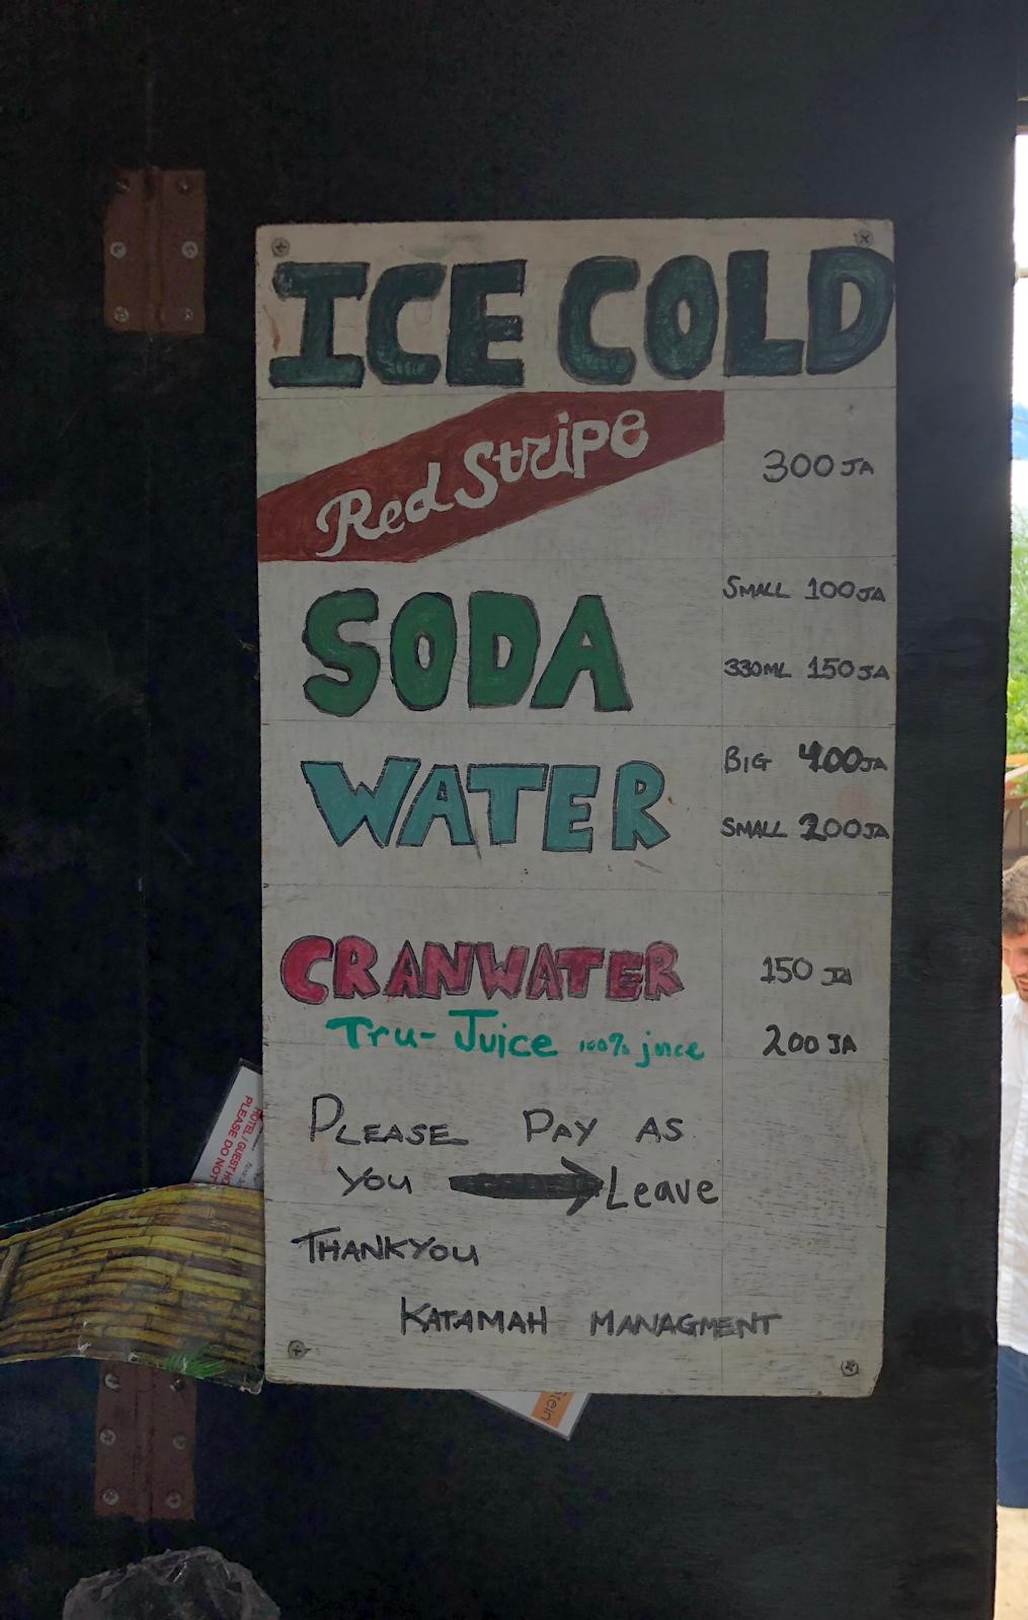 ICE COLD
Red Stripe 300 JA
SMALL 100 JA
SODA
330ML 150 JA
BIG 400 JA
WATER
SMALL 200 JA
CRANWATER 150 JA
Tru-Juice 100% juice 200 JA
PLEASE PAY AS
YOU Leave
THANKYOU
KATAMAH MANAGMENT
HOTEL/GUEST
PLEASE DO NOT